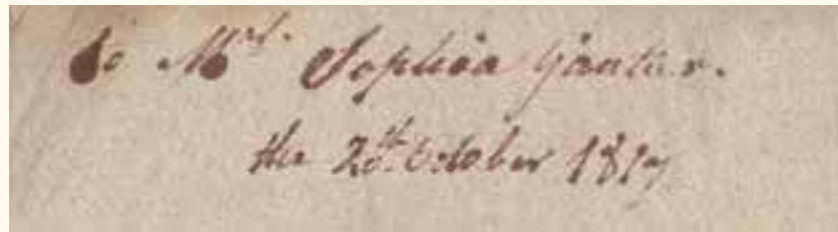 To Mrs. Sophia Gantter.
the 20th. October 1817